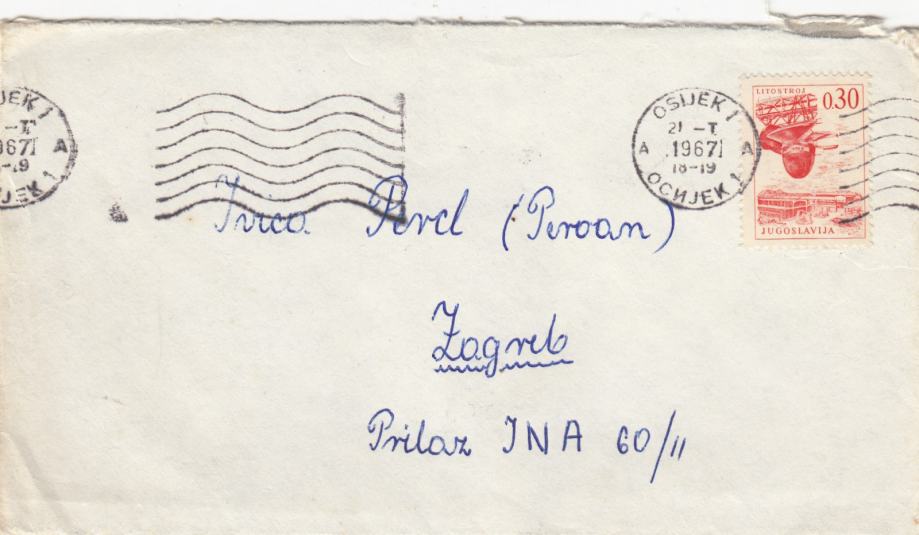 OSIJEK 1
21 -I
1967
18-19
A A
ОСИЈЕК 1
LITOSTROJ
0.30
JUGOSLAVIJA
JEK 1
-I
967
-19
A
ИЈЕК 1
Ivica (Peroan)
Zagreb
Prilaz JNA 60/II